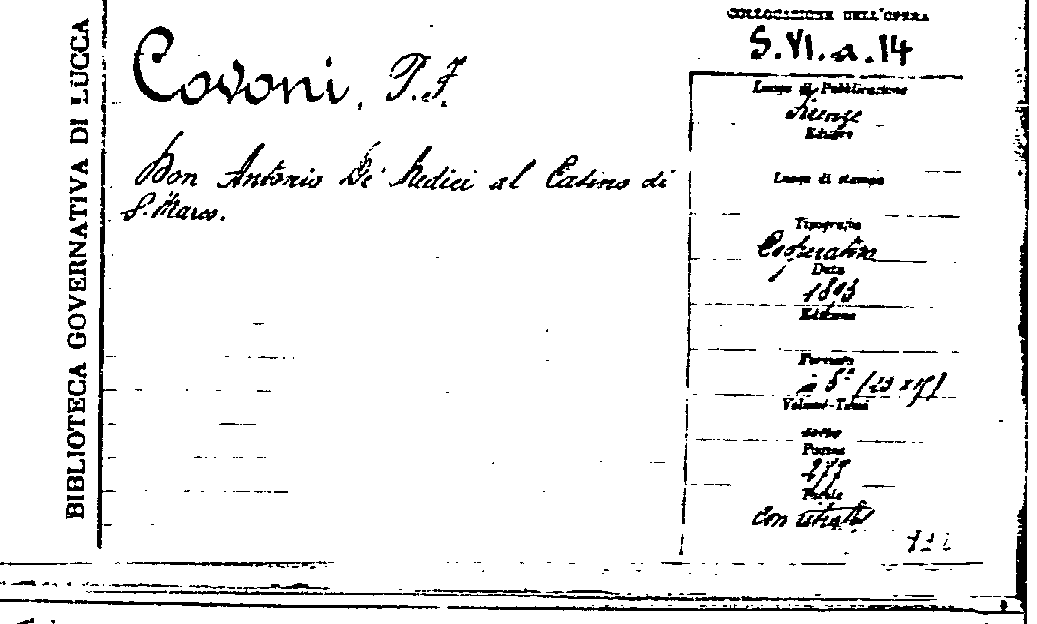 BIBLIOTECA GOVERNATIVA DI LUCCA
Covoni, P. F.
Don Antonio De' Medici al Casino di
S. Marco.
COLLOCAZIONE DELL'OPERA
S.VI.a.14
Luogo di Pubblicazione
Firenze
Editore
Luogo di stampa
Tipografia
Cooperativa
Data
1893
Edizione
Formato
in 8°
Volumi-Tomi
Pagine
con ritratto